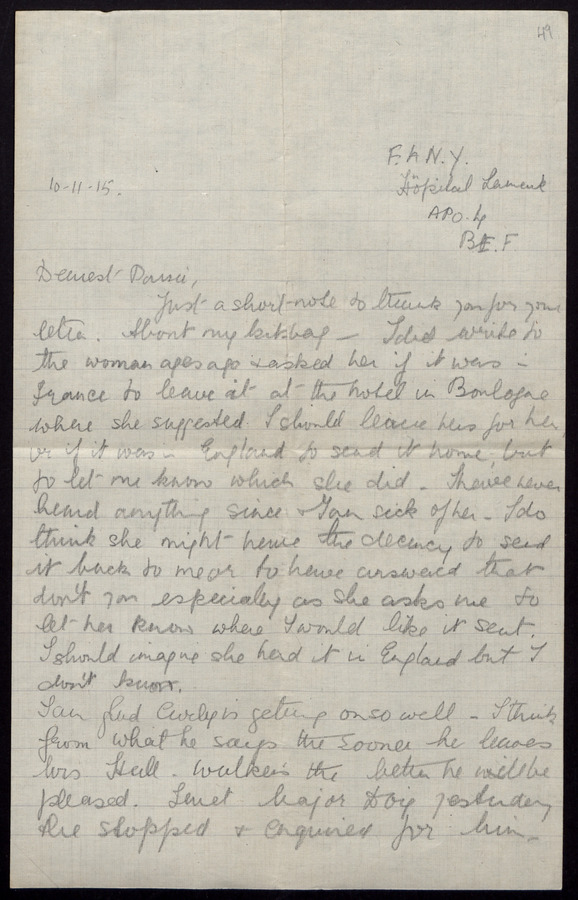 49
F.A.N.Y.
10-11-15. Hôpital Lamark
APO. 4
B.E.F
Dearest
Just a short note to thank you for your
letter. About my kitbag – I did write to
the woman ages ago & asked her if it was in
France to leave it at the hotel in Boulogne
where she suggested I should leave hers for her,
or if it was in England to send it home, but
to let me know which she did – I have never
heard anything since & I am sick of her – I do
think she might have the decency to send
it back to me or to have answered that
don't you especially as she asks me to
let her know where I would like it sent.
I should imagine she had it in England but I
don't know.
I am glad is getting on so well – I think
from what he says the sooner he leaves
his Hall. Walker's the better he will be
pleased. I met Major Doig yesterday
He stopped & enquired for him –